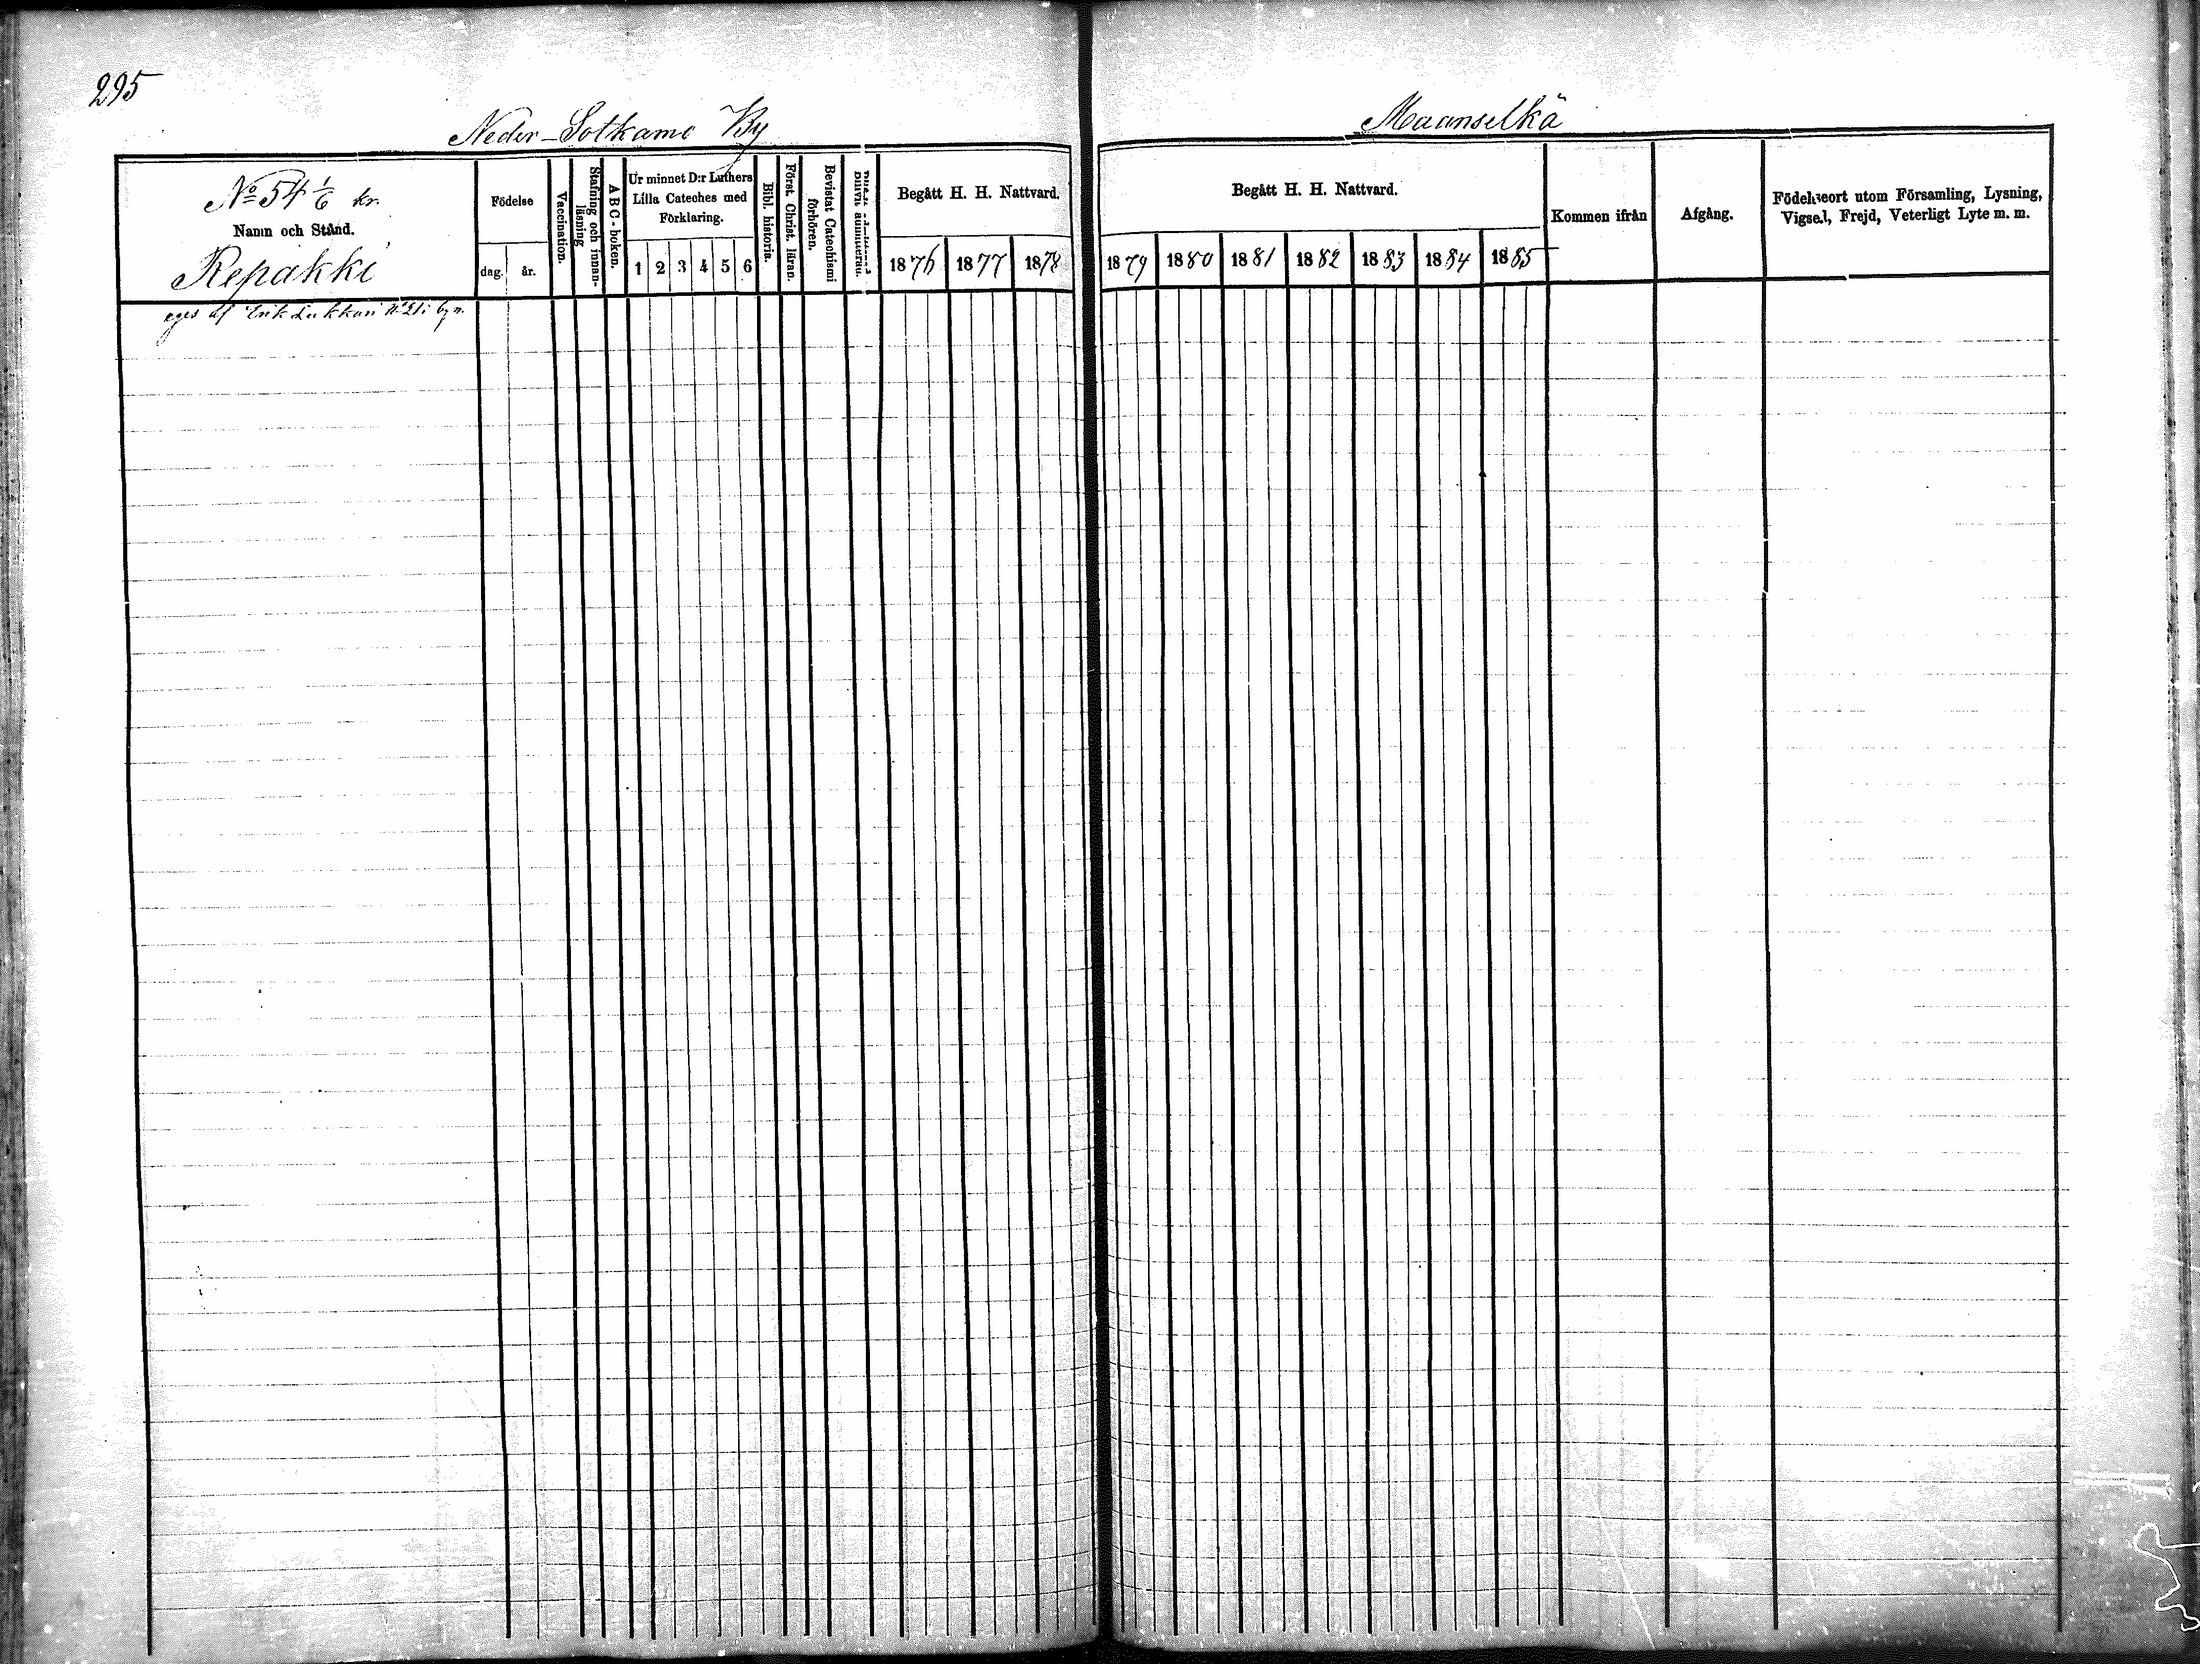 295
Neder-Sotkamo By
Maanselkä
No 54 1/6 kr.
Namn och Stånd.
Repakki
Födelse
dag.
år.
Vaccination.
Stafning och innan-
läsning
ABC-boken.
Ur minnet D:r Luthers
Lilla Cateches med
Förklaring.
1 2 3 4 5 6
Bibl. historia.
Först. Christ. läran.
Bevistat Catechismi
förhören.
Blifvit admitterad.
Begått H. H. Nattvard.
1876 1877 1878
Begått H. H. Nattvard.
1879 1880 1881 1882 1883 1884 1885
Kommen ifrån
Afgång.
Födelseort utom Församling, Lysning,
Vigsel, Frejd, Veterligt Lyte m. m.
eges af Erik Lukkari No 21 i byn.